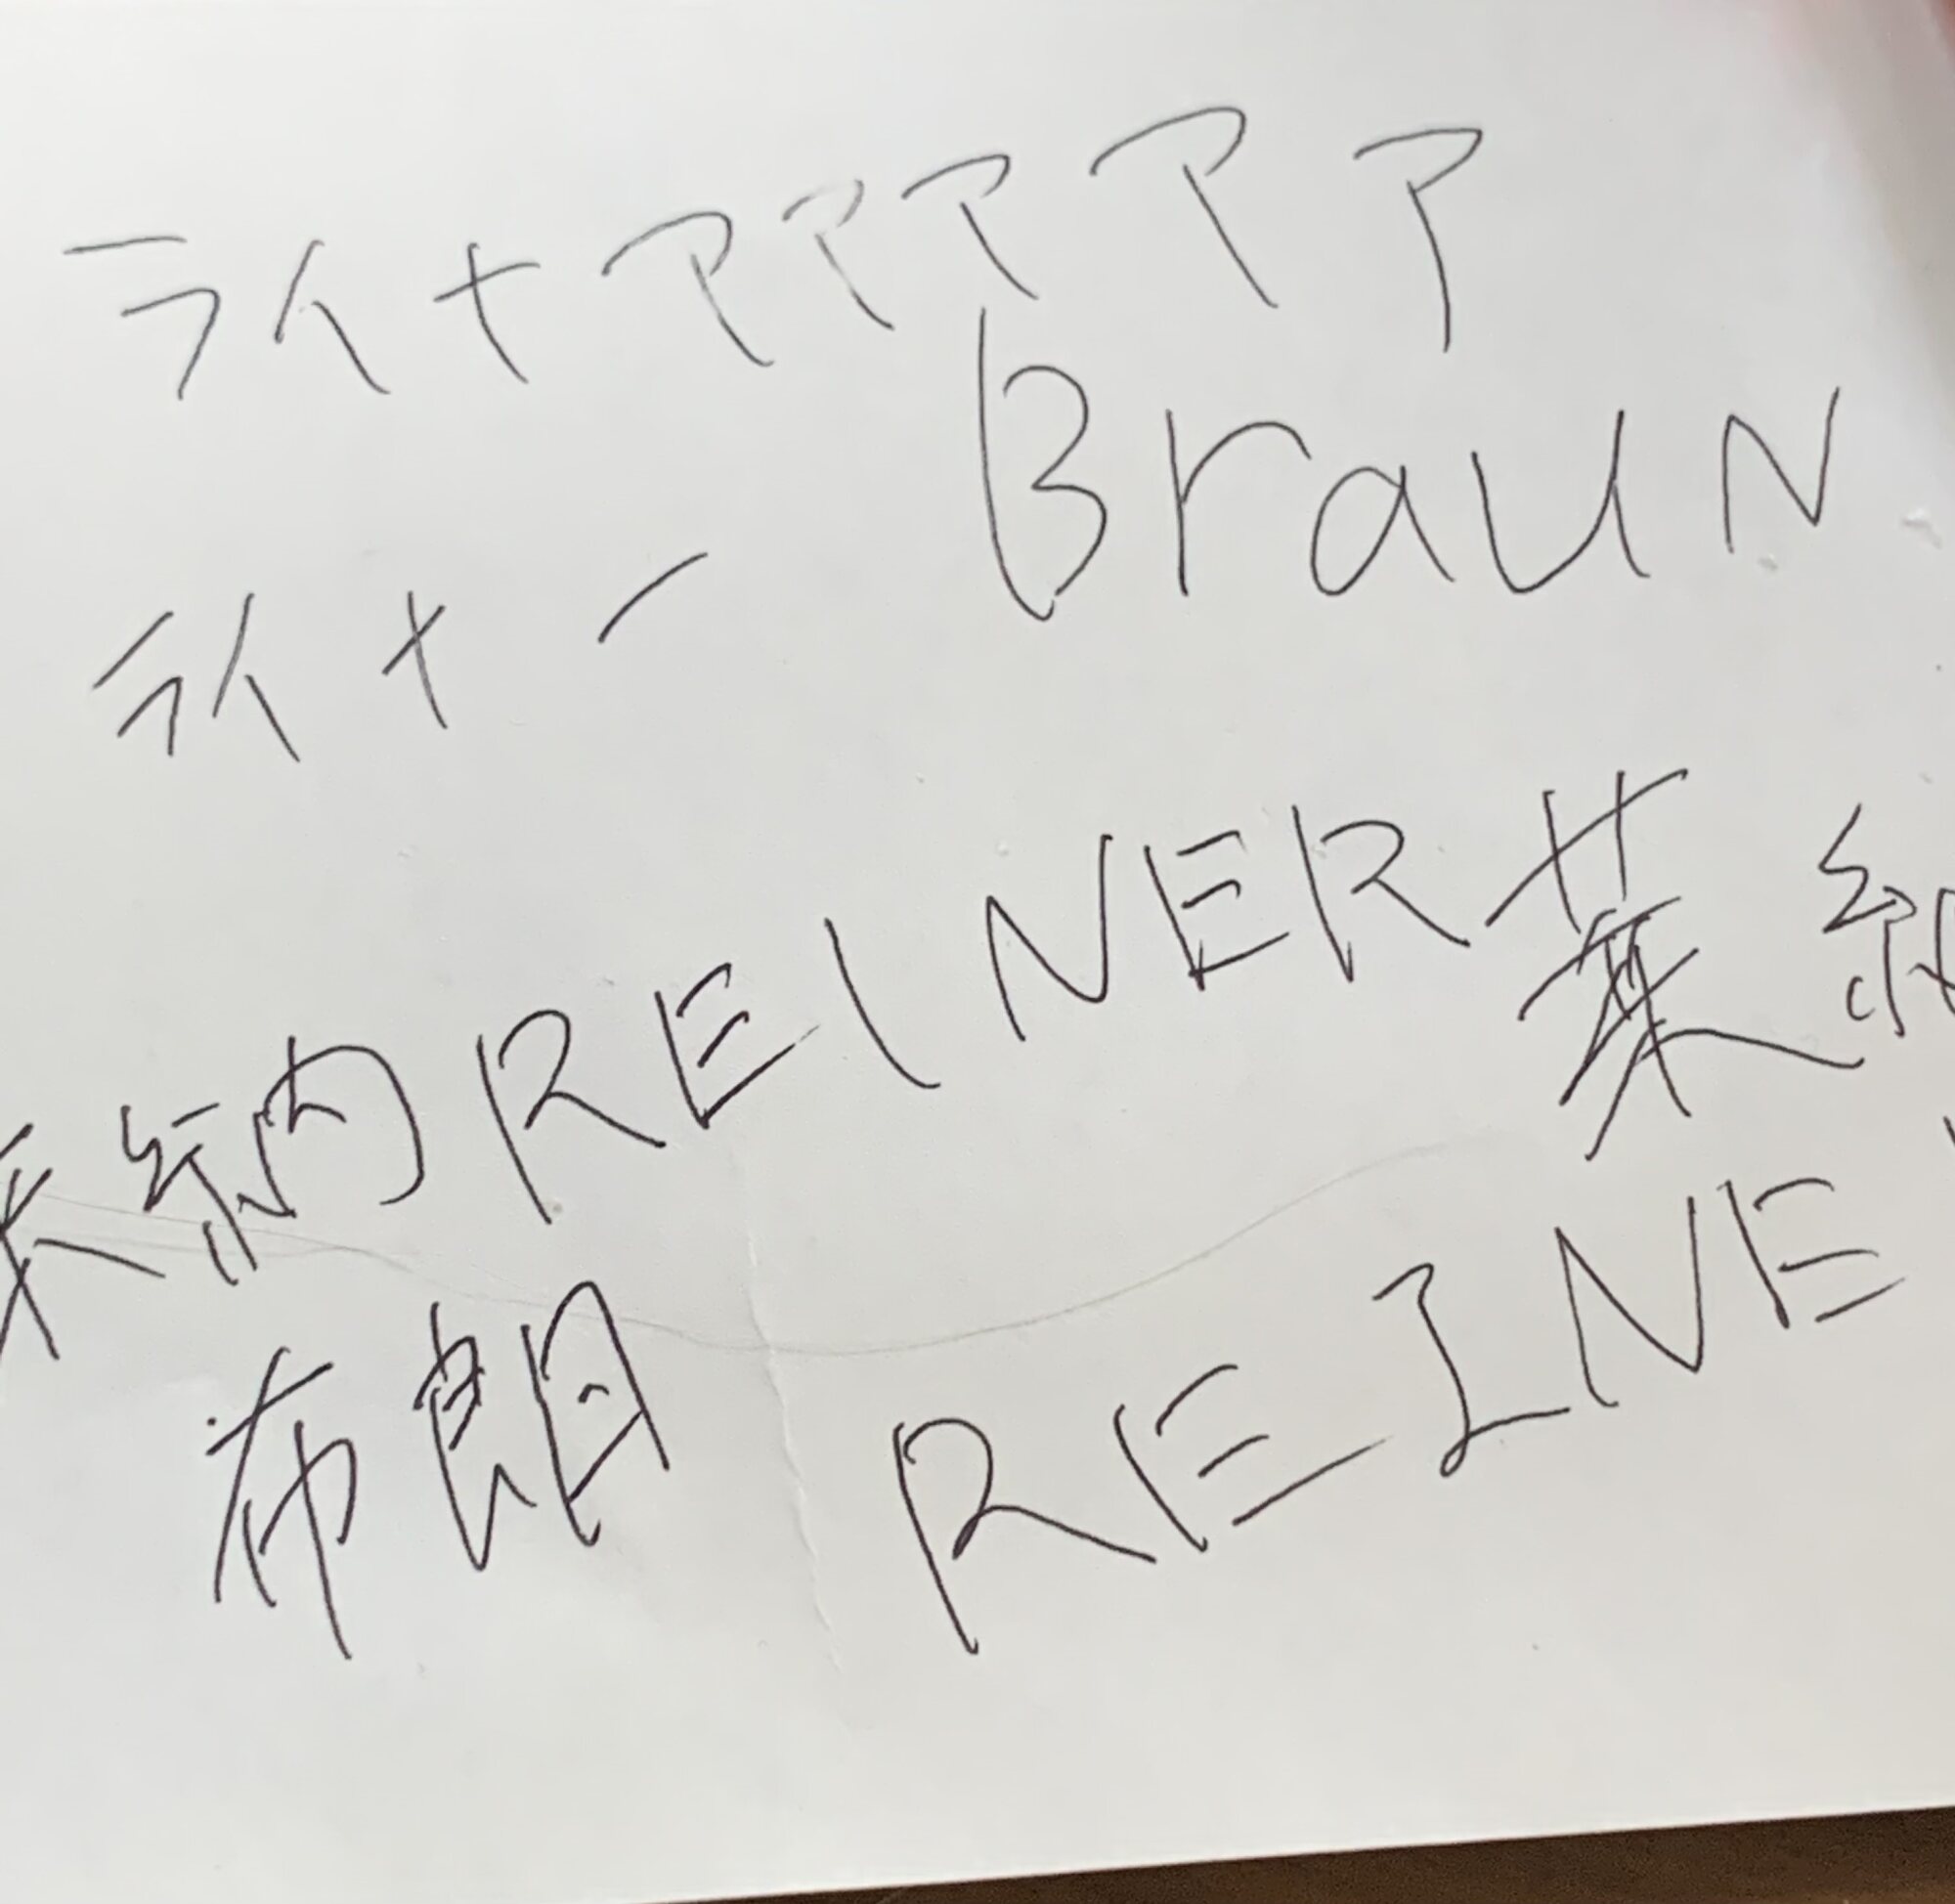 ライナアアアアア
Braun
ライナー
萊納REINER萊納
布朗 REINE